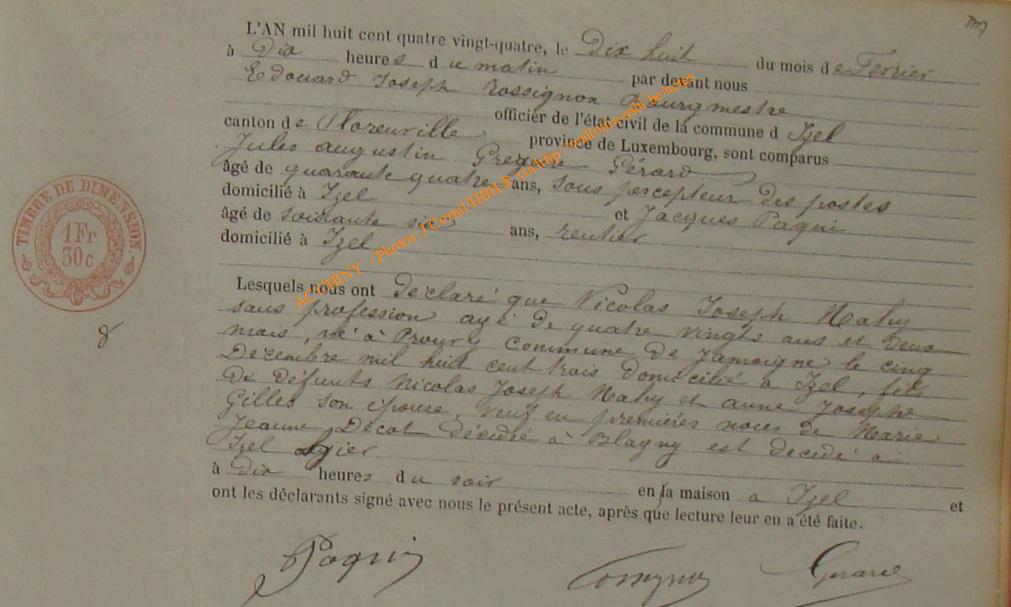 L'AN mil huit cent quatre vingt-quatre, le Dix huit du mois de Fevrier
à Dix heures du matin par devant nous
Edouard Joseph Rossignon Bourgmestre
officier de l'état civil de la commune d Izel
canton de Florenville province de Luxembourg, sont comparus
Jules augustin Gregoire Gérard
âgé de quarante quatre ans, Sous percepteur des postes
domicilié à Izel et Jacques Paquin
âgé de soixante six ans, rentier
domicilié à Izel
Lesquels nous ont déclaré que Nicolas Joseph Mahy
sans profession agé de quatre vingts ans et deux
mois, né à Prouvy Commune de Jamoigne le cinq
Décembre mil huit cent trois domicilié à Izel, fils
de défunts Nicolas Joseph Mahy et anne Josephe
Gilles son épouse, veuf en premières noces de Marie
Jeanne décédée à Blagny est décédé à
Izel hier
à dix heures du soir en la maison a Izel et
ont les déclarants signé avec nous le présent acte, après que lecture leur en a été faite.
Paquin
TIMBRE DE DIMENSION
1 Fr
30 c
ACTCHINY - Photos J